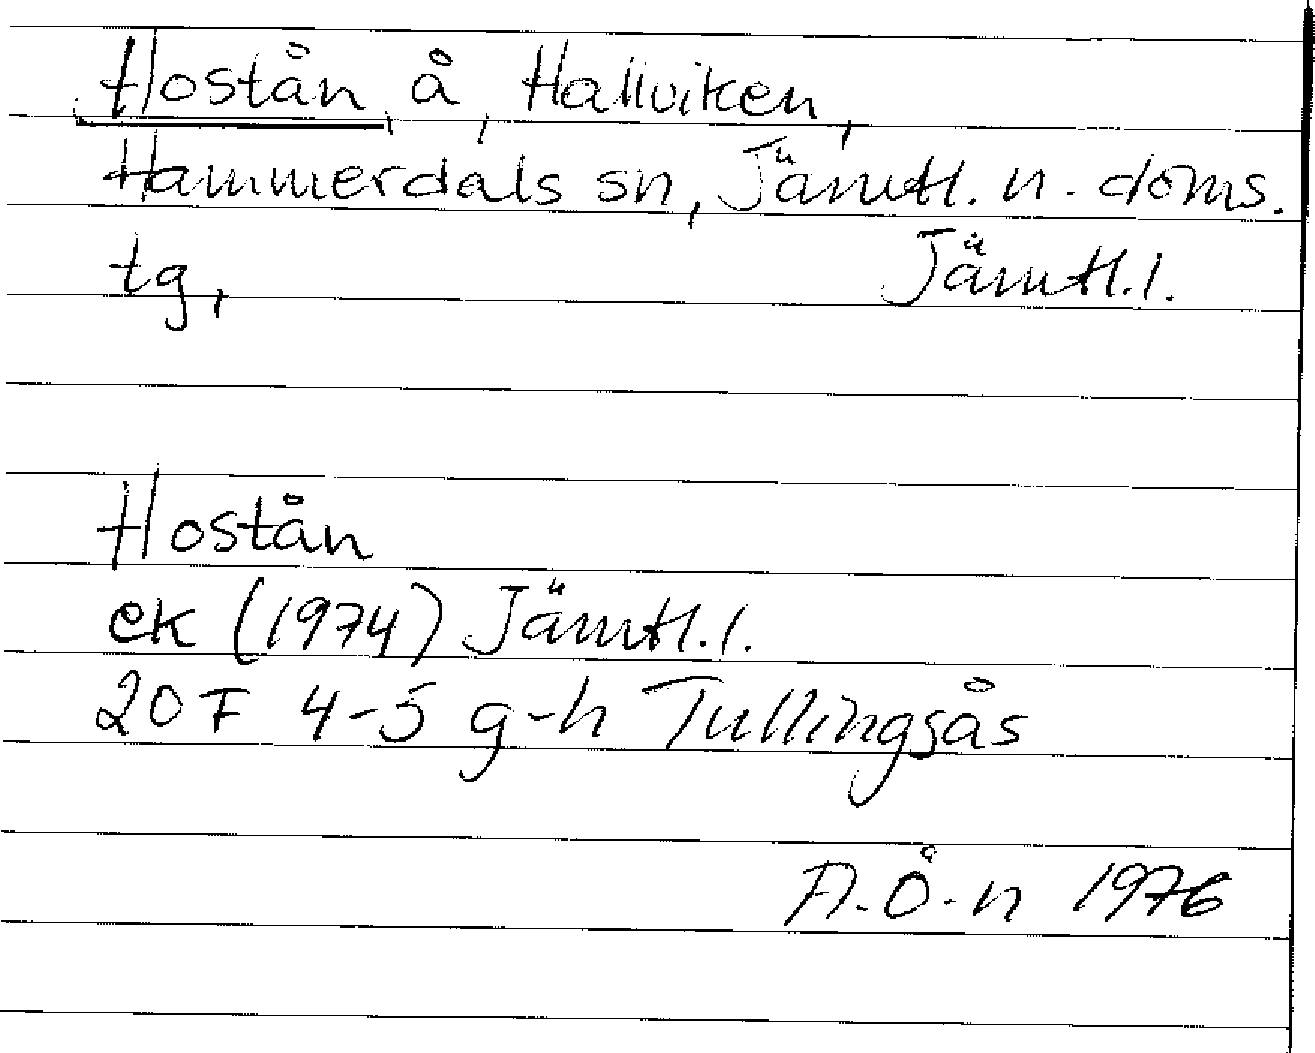 Hostån, å, Hallviken,
Hammerdals sn, Jämtl. n. doms.
tg, Jämtl.l.
Hostån
ek (1974) Jämtl.l.
20F 4-5 g-h Tullingsås
A.Ö.n 1976